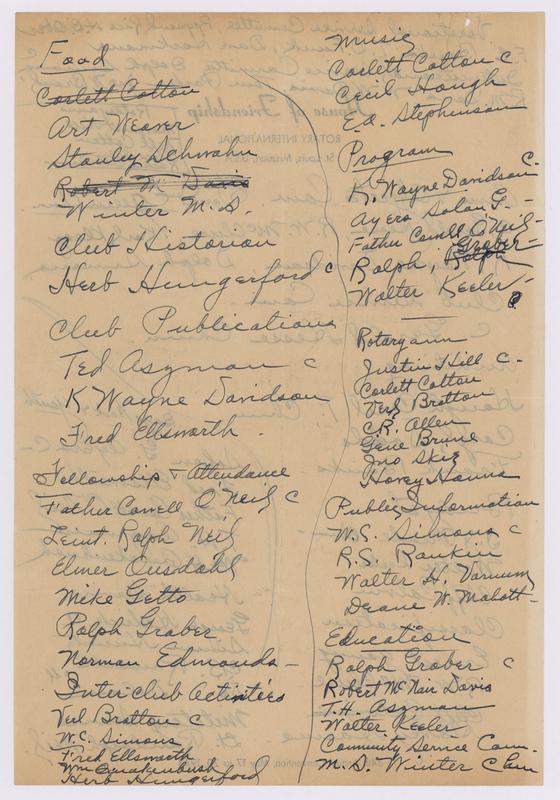 Food
Corlett Cotton
Art Weaver
Stanley Schwahn
Robert M Davis
Winter M.D.
Club Historian
Herb Hungerford c
Club Publications
Ted Aszman c
K Wayne Davidson
Fred Ellsworth.
Fellowship + Attendance
Father Cowell O'Neil C
Leint. Ralph Neil
Elmer Ousdahl
Mike Getto
Ralph Graber
Norman Edmonds -
Inter club activities
Verl Bratton c
W.C. Simons
Fred Ellsworth
Wm Quakenbush
Herb Hungerford
Music
Corlett Cotton C
Cecil Hough
E.a. Stephenson
Program
K. Wayne Davidson C-
Ayers Solon G. -
Father Cowell O'Neil -
Ralph, Graber -
Ralph
Walter Keeler - ?
Rotary ann
Justin Hill C-
Corlett Cotton
Verl Bratton
C.R. Allen
Gene Brune
Jno Skie
Hovey Hanna
Public Information
W.C. Simons c
R.S. Rankin
Walter H. Varnum
Deane W. Malott-
Education
Ralph Graber c
Robert McNair Davis
T.H. Aszman
Walter Keeler
Community Service Com.
M.D. Winter Chm